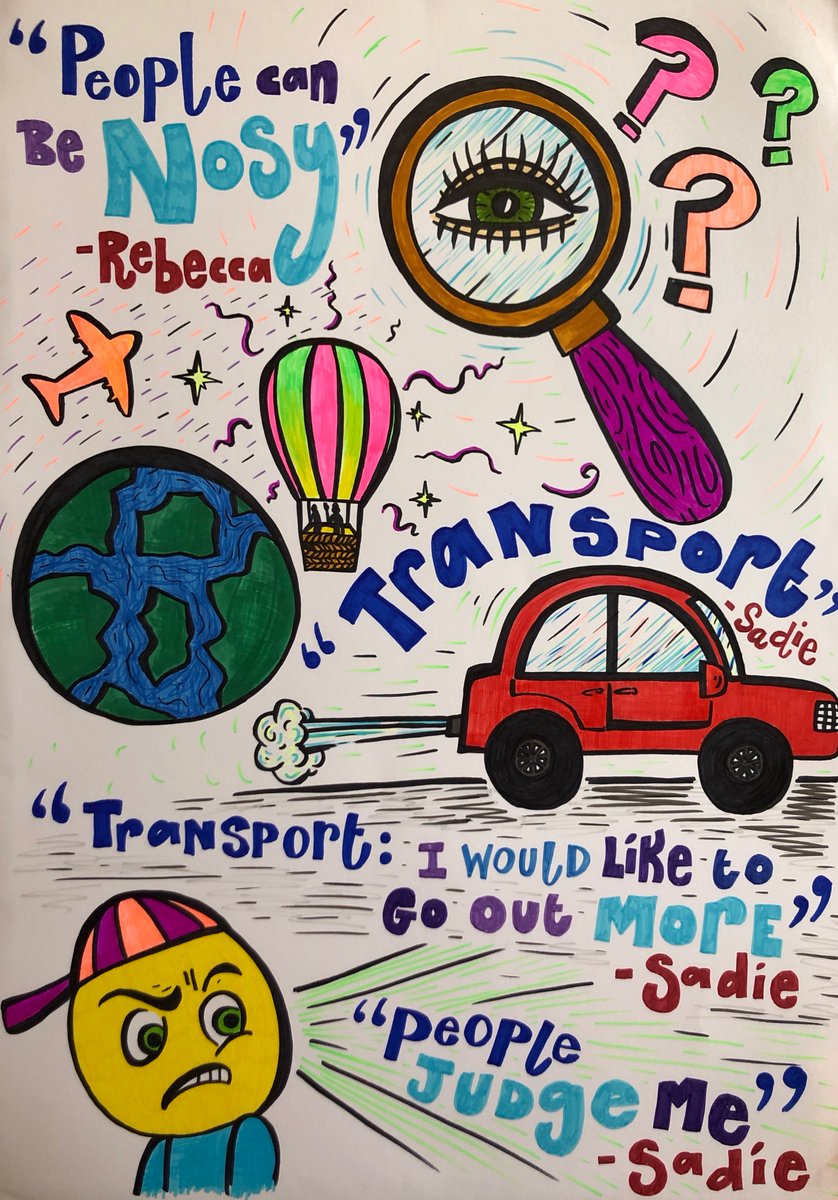 “People can
Be Nosy”
-Rebecca
“Transport”
-Sadie
“Transport: I would like to
Go out More”
-Sadie
“People
Judge Me”
-Sadie